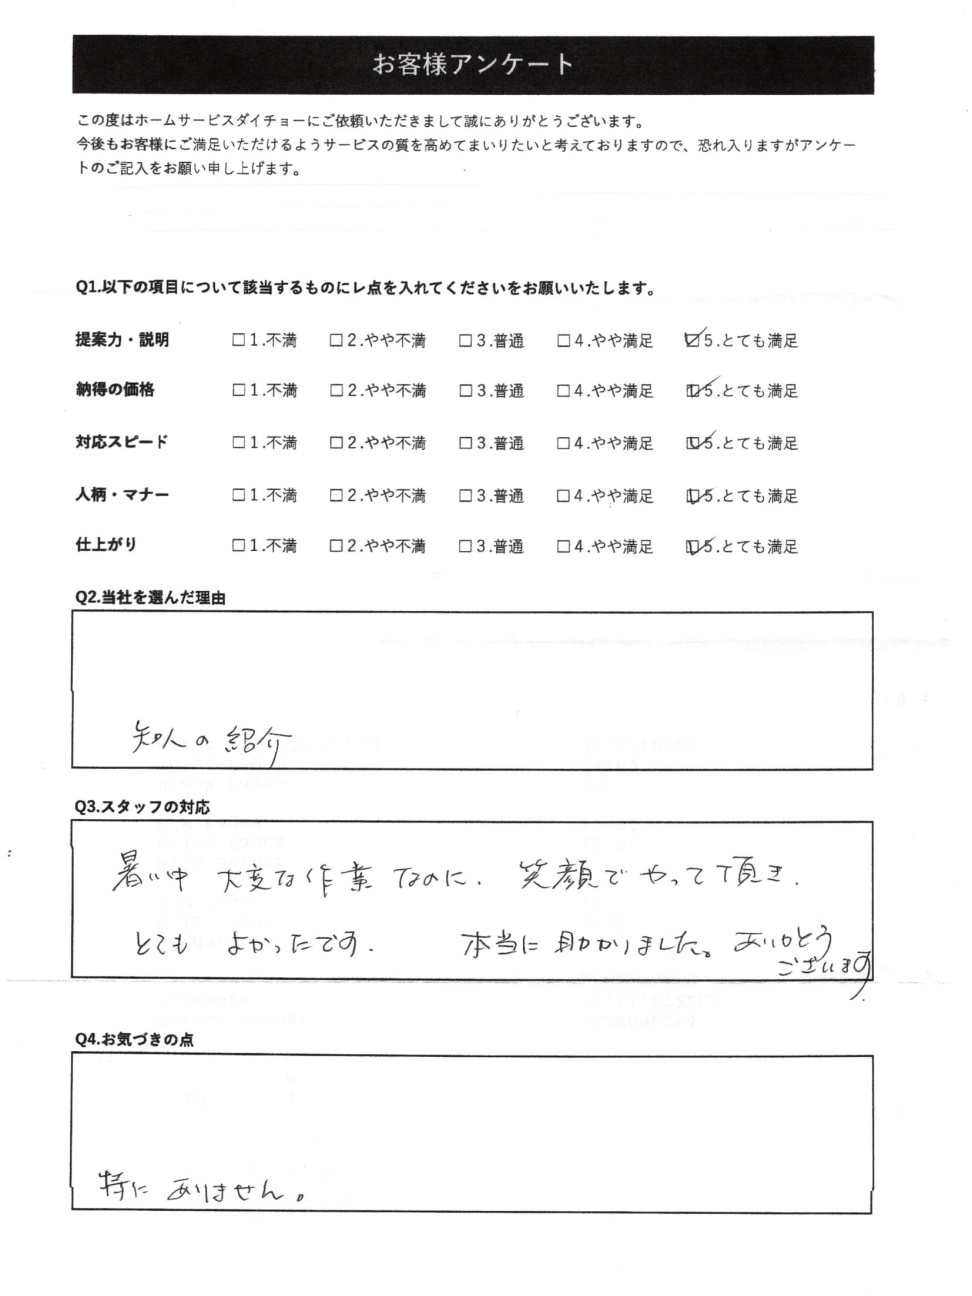 お客様アンケート
この度はホームサービスダイチョーにご依頼いただきまして誠にありがとうございます。
今後もお客様にご満足いただけるようサービスの質を高めてまいりたいと考えておりますので、恐れ入りますがアンケー
トのご記入をお願い申し上げます。
Q1.以下の項目について該当するものにレ点を入れてくださいをお願いいたします。
提案力・説明 □1.不満 □2.やや不満 □3.普通 □4.やや満足 ☑5.とても満足
納得の価格 □1.不満 □2.やや不満 □3.普通 □4.やや満足 ☑5.とても満足
対応スピード □1.不満 □2.やや不満 □3.普通 □4.やや満足 ☑5.とても満足
人柄・マナー □1.不満 □2.やや不満 □3.普通 □4.やや満足 ☑5.とても満足
仕上がり □1.不満 □2.やや不満 □3.普通 □4.やや満足 ☑5.とても満足
Q2.当社を選んだ理由
知人の紹介
Q3.スタッフの対応
暑い中 大変な作業なのに、笑顔でやって頂き、
とても よかったです。 本当に助かりました。ありがとう
ございます。
Q4.お気づきの点
特に ありません。